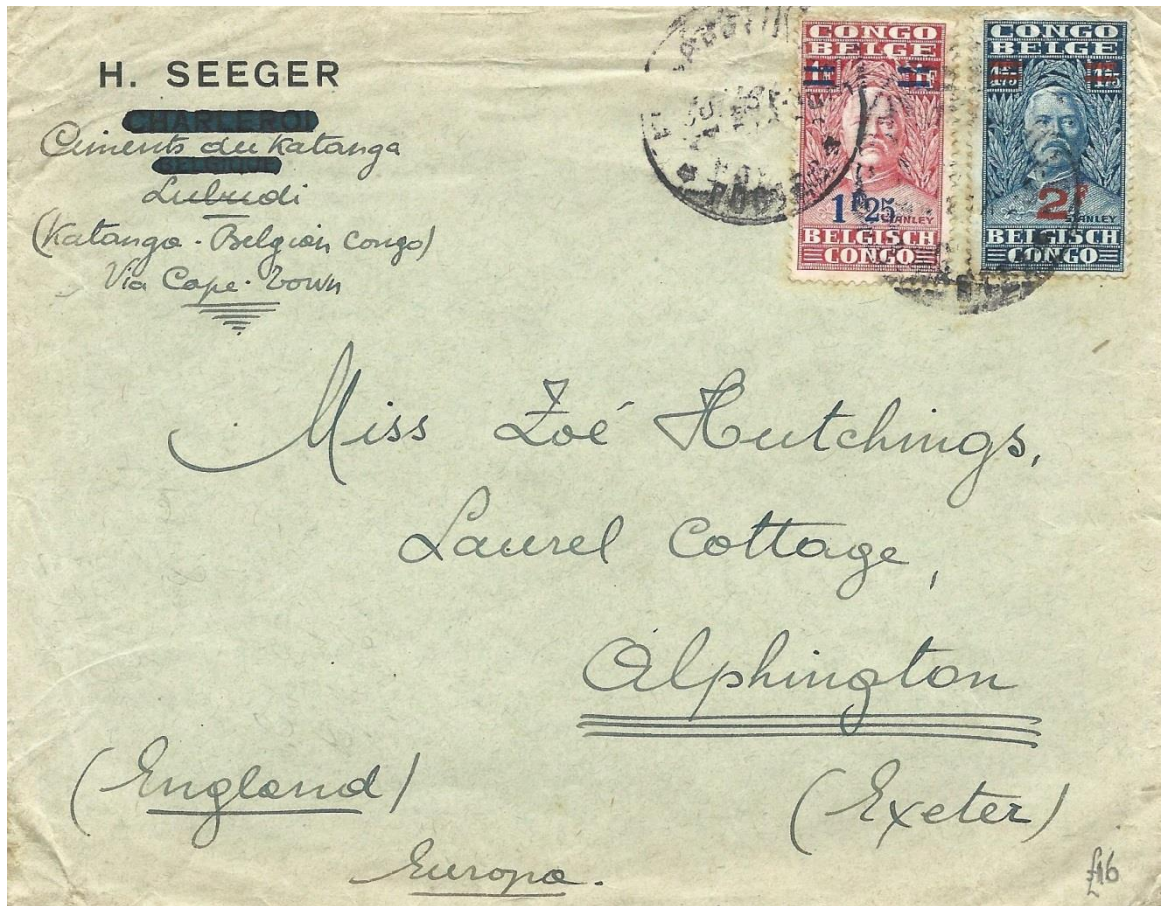 H. SEEGER
CHARLEROI
Ciments du Katanga
Lubudi
(Katanga - Belgian Congo)
Via Cape-Town
CONGO
BELGE
1F25
STANLEY
BELGISCH
CONGO
CONGO
BELGE
1F75 1F75
2F
STANLEY
BELGISCH
CONGO
Miss Zoé Hutchings,
Laurel Cottage,
Alphington
(Exeter)
(England)
Europa.
£16